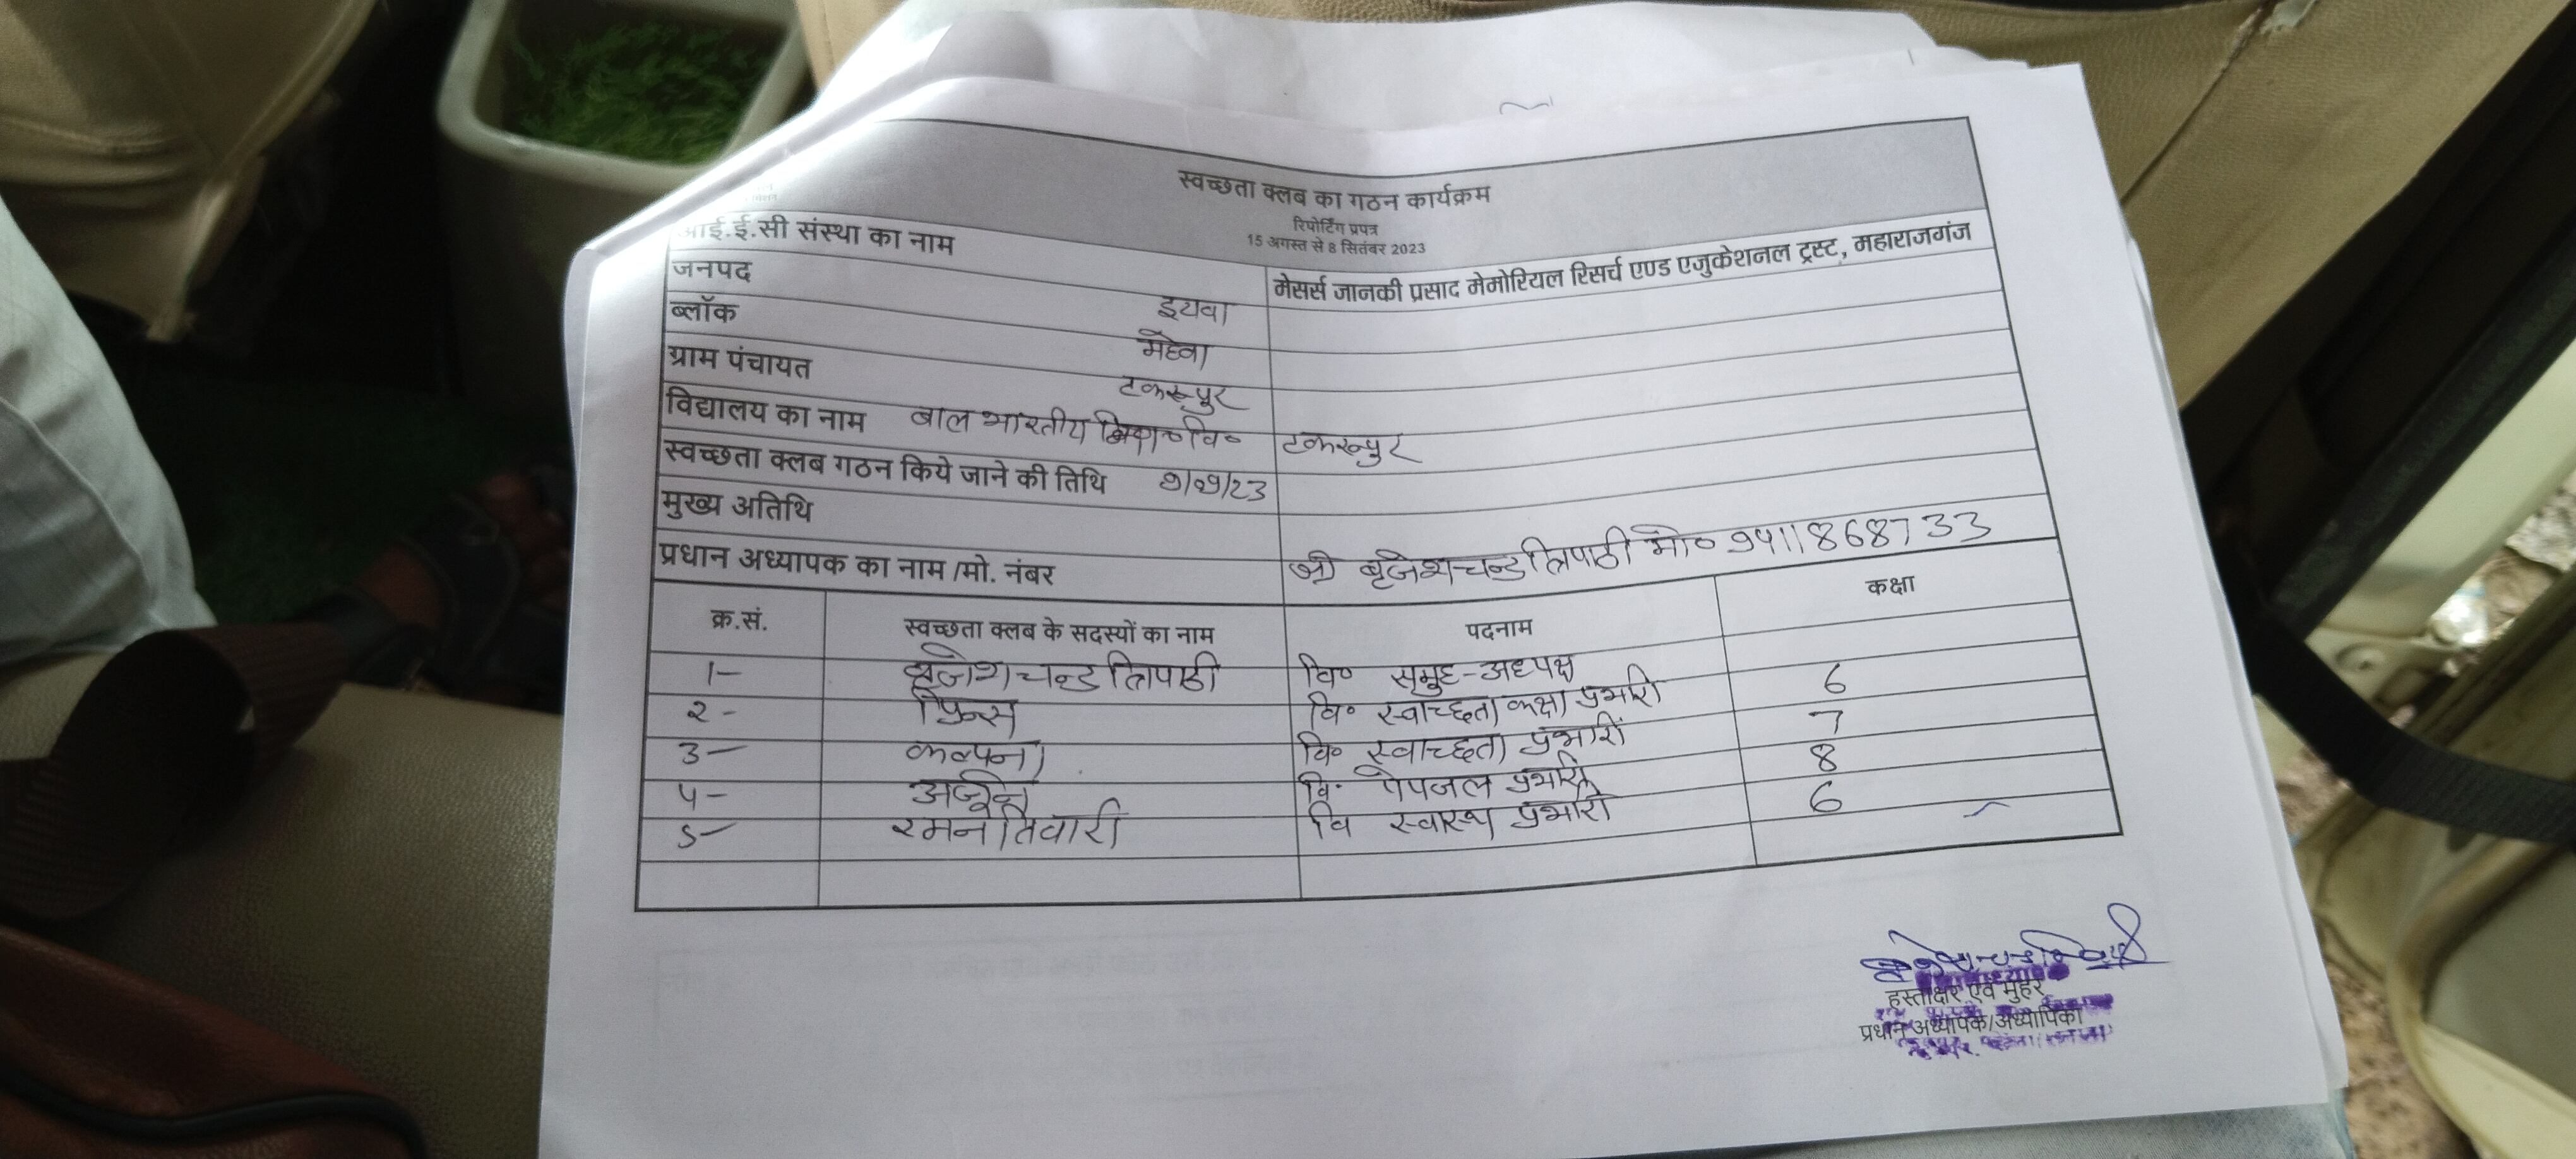 स्वच्छता क्लब का गठन कार्यक्रम
रिपोर्टिंग प्रपत्र
15 अगस्त से 8 सितंबर 2023
आई.ई.सी संस्था का नाम मेसर्स जानकी प्रसाद मेमोरियल रिसर्च एण्ड एजुकेशनल ट्रस्ट, महाराजगंज
जनपद इटावा
ब्लॉक महेवा
ग्राम पंचायत टकरूपुर
विद्यालय का नाम बाल भारतीय वि० टकरूपुर
स्वच्छता क्लब गठन किये जाने की तिथि
मुख्य अतिथि
प्रधान अध्यापक का नाम /मो. नंबर श्री बृजेशचन्द्र त्रिपाठी मो० 9411868733
क्र.सं. स्वच्छता क्लब के सदस्यों का नाम पदनाम कक्षा
1- बृजेशचन्द्र त्रिपाठी वि० समुह-अध्यक्ष
2- प्रिन्स वि० स्वाच्छता कक्षा प्रभारी 6
3- कल्पना वि० स्वाच्छता प्रभारी 7
4- वि० पेयजल प्रभारी 8
5- रमन तिवारी वि स्वास्थ्य प्रभारी 6
हस्ताक्षर एवं मुहर
प्रधान अध्यापक/अध्यापिका